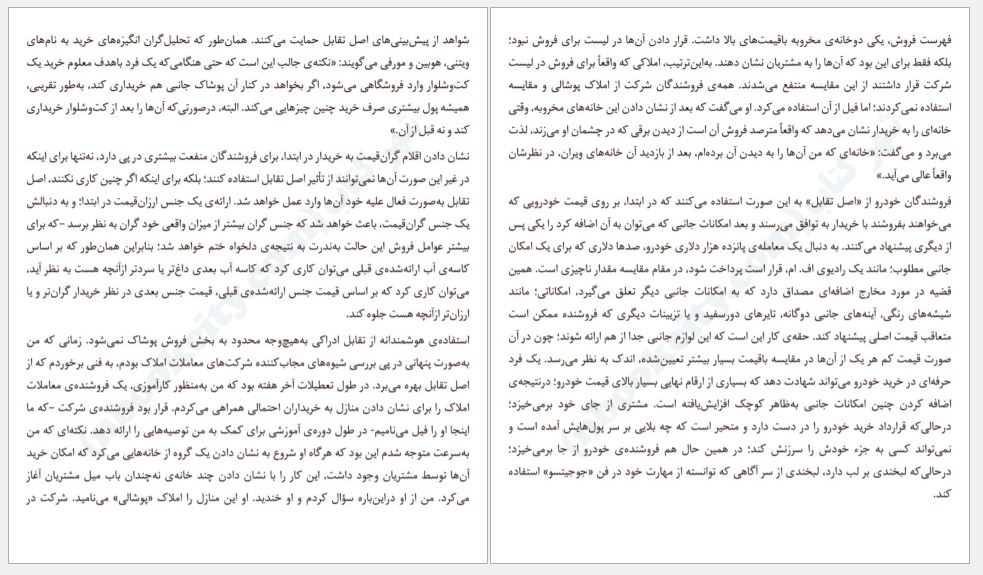 شواهد از پیش‌بینی‌های اصل تقابل حمایت می‌کنند. همان‌طور که تحلیل‌گران انگیزه‌های خرید به نام‌های
ویتنی، هوبین و مورفی می‌گویند: «نکته‌ی جالب این است که حتی هنگامی‌که یک فرد باهدف معلوم خرید یک
کت‌وشلوار وارد فروشگاهی می‌شود، اگر بخواهد در کنار آن پوشاک جانبی هم خریداری کند، به‌طور تقریبی،
همیشه پول بیشتری صرف خرید چنین چیزهایی می‌کند. البته، درصورتی‌که آن‌ها را بعد از کت‌وشلوار خریداری
کند و نه قبل از آن.»
نشان دادن اقلام گران‌قیمت به خریدار در ابتدا، برای فروشندگان منفعت بیشتری در پی دارد، نه‌تنها برای اینکه
در غیر این صورت آن‌ها نمی‌توانند از تأثیر اصل تقابل استفاده کنند؛ بلکه برای اینکه اگر چنین کاری نکنند، اصل
تقابل به‌صورت فعال علیه خود آن‌ها وارد عمل خواهد شد. ارائه‌ی یک جنس ارزان‌قیمت در ابتدا؛ و به دنبالش
یک جنس گران‌قیمت، باعث خواهد شد که جنس گران بیشتر از میزان واقعی خود گران به نظر برسد –که برای
بیشتر عوامل فروش این حالت به‌ندرت به نتیجه‌ی دلخواه ختم خواهد شد؛ بنابراین همان‌طور که بر اساس
کاسه‌ی آب ارائه‌شده‌ی قبلی می‌توان کاری کرد که کاسه آب بعدی داغ‌تر یا سردتر ازآنچه هست به نظر آید،
می‌توان کاری کرد که بر اساس قیمت جنس ارائه‌شده‌ی قبلی، قیمت جنس بعدی در نظر خریدار گران‌تر و یا
ارزان‌تر ازآنچه هست جلوه کند.
استفاده‌ی هوشمندانه از تقابل ادراکی به‌هیچ‌وجه محدود به بخش فروش پوشاک نمی‌شود. زمانی که من
به‌صورت پنهانی در پی بررسی شیوه‌های مجاب‌کننده شرکت‌های معاملات املاک بودم، به فنی برخوردم که از
اصل تقابل بهره می‌برد. در طول تعطیلات آخر هفته بود که من به‌منظور کارآموزی، یک فروشنده‌ی معاملات
املاک را برای نشان دادن منازل به خریداران احتمالی همراهی می‌کردم. قرار بود فروشنده‌ی شرکت –که ما
اینجا او را فیل می‌نامیم- در طول دوره‌ی آموزشی برای کمک به من توصیه‌هایی را ارائه دهد. نکته‌ای که من
به‌سرعت متوجه شدم این بود که هرگاه او شروع به نشان دادن یک گروه از خانه‌هایی می‌کرد که امکان خرید
آن‌ها توسط مشتریان وجود داشت، این کار را با نشان دادن چند خانه‌ی نه‌چندان باب میل مشتریان آغاز
می‌کرد. من از او دراین‌باره سؤال کردم و او خندید. او این منازل را املاک «پوشالی» می‌نامید. شرکت در
فهرست فروش، یکی دوخانه‌ی مخروبه باقیمت‌های بالا داشت. قرار دادن آن‌ها در لیست برای فروش نبود؛
بلکه فقط برای این بود که آن‌ها را به مشتریان نشان دهند. به‌این‌ترتیب، املاکی که واقعاً برای فروش در لیست
شرکت قرار داشتند از این مقایسه منتفع می‌شدند. همه‌ی فروشندگان شرکت از املاک پوشالی و مقایسه
استفاده نمی‌کردند؛ اما فیل از آن استفاده می‌کرد. او می‌گفت که بعد از نشان دادن این خانه‌های مخروبه، وقتی
خانه‌ای را به خریدار نشان می‌دهد که واقعاً مترصد فروش آن است از دیدن برقی که در چشمان او می‌زند، لذت
می‌برد و می‌گفت: «خانه‌ای که من آن‌ها را به دیدن آن برده‌ام، بعد از بازدید آن خانه‌های ویران، در نظرشان
واقعاً عالی می‌آید.»
فروشندگان خودرو از «اصل تقابل» به این صورت استفاده می‌کنند که در ابتدا، بر روی قیمت خودرویی که
می‌خواهند بفروشند با خریدار به توافق می‌رسند و بعد امکانات جانبی که می‌توان به آن اضافه کرد را یکی پس
از دیگری پیشنهاد می‌کنند. به دنبال یک معامله‌ی پانزده هزار دلاری خودرو، صدها دلاری که برای یک امکان
جانبی مطلوب؛ مانند یک رادیوی اف. ام، قرار است پرداخت شود، در مقام مقایسه مقدار ناچیزی است. همین
قضیه در مورد مخارج اضافه‌ای مصداق دارد که به امکانات جانبی دیگر تعلق می‌گیرد، امکاناتی؛ مانند
شیشه‌های رنگی، آینه‌های جانبی دوگانه، تایرهای دورسفید و یا تزیینات دیگری که فروشنده ممکن است
متعاقب قیمت اصلی پیشنهاد کند. حقه‌ی کار این است که این لوازم جانبی جدا از هم ارائه شوند؛ چون در آن
صورت قیمت کم هر یک از آن‌ها در مقایسه باقیمت بسیار بیشتر تعیین‌شده، اندک به نظر می‌رسد. یک فرد
حرفه‌ای در خرید خودرو می‌تواند شهادت دهد که بسیاری از ارقام نهایی بسیار بالای قیمت خودرو؛ درنتیجه‌ی
اضافه کردن چنین امکانات جانبی به‌ظاهر کوچک افزایش‌یافته است. مشتری از جای خود برمی‌خیزد؛
درحالی‌که قرارداد خرید خودرو را در دست دارد و متحیر است که چه بلایی بر سر پول‌هایش آمده است و
نمی‌تواند کسی به جزء خودش را سرزنش کند؛ در همین حال هم فروشنده‌ی خودرو از جا برمی‌خیزد؛
درحالی‌که لبخندی بر لب دارد، لبخندی از سر آگاهی که توانسته از مهارت خود در فن «جوجیتسو» استفاده
کند.